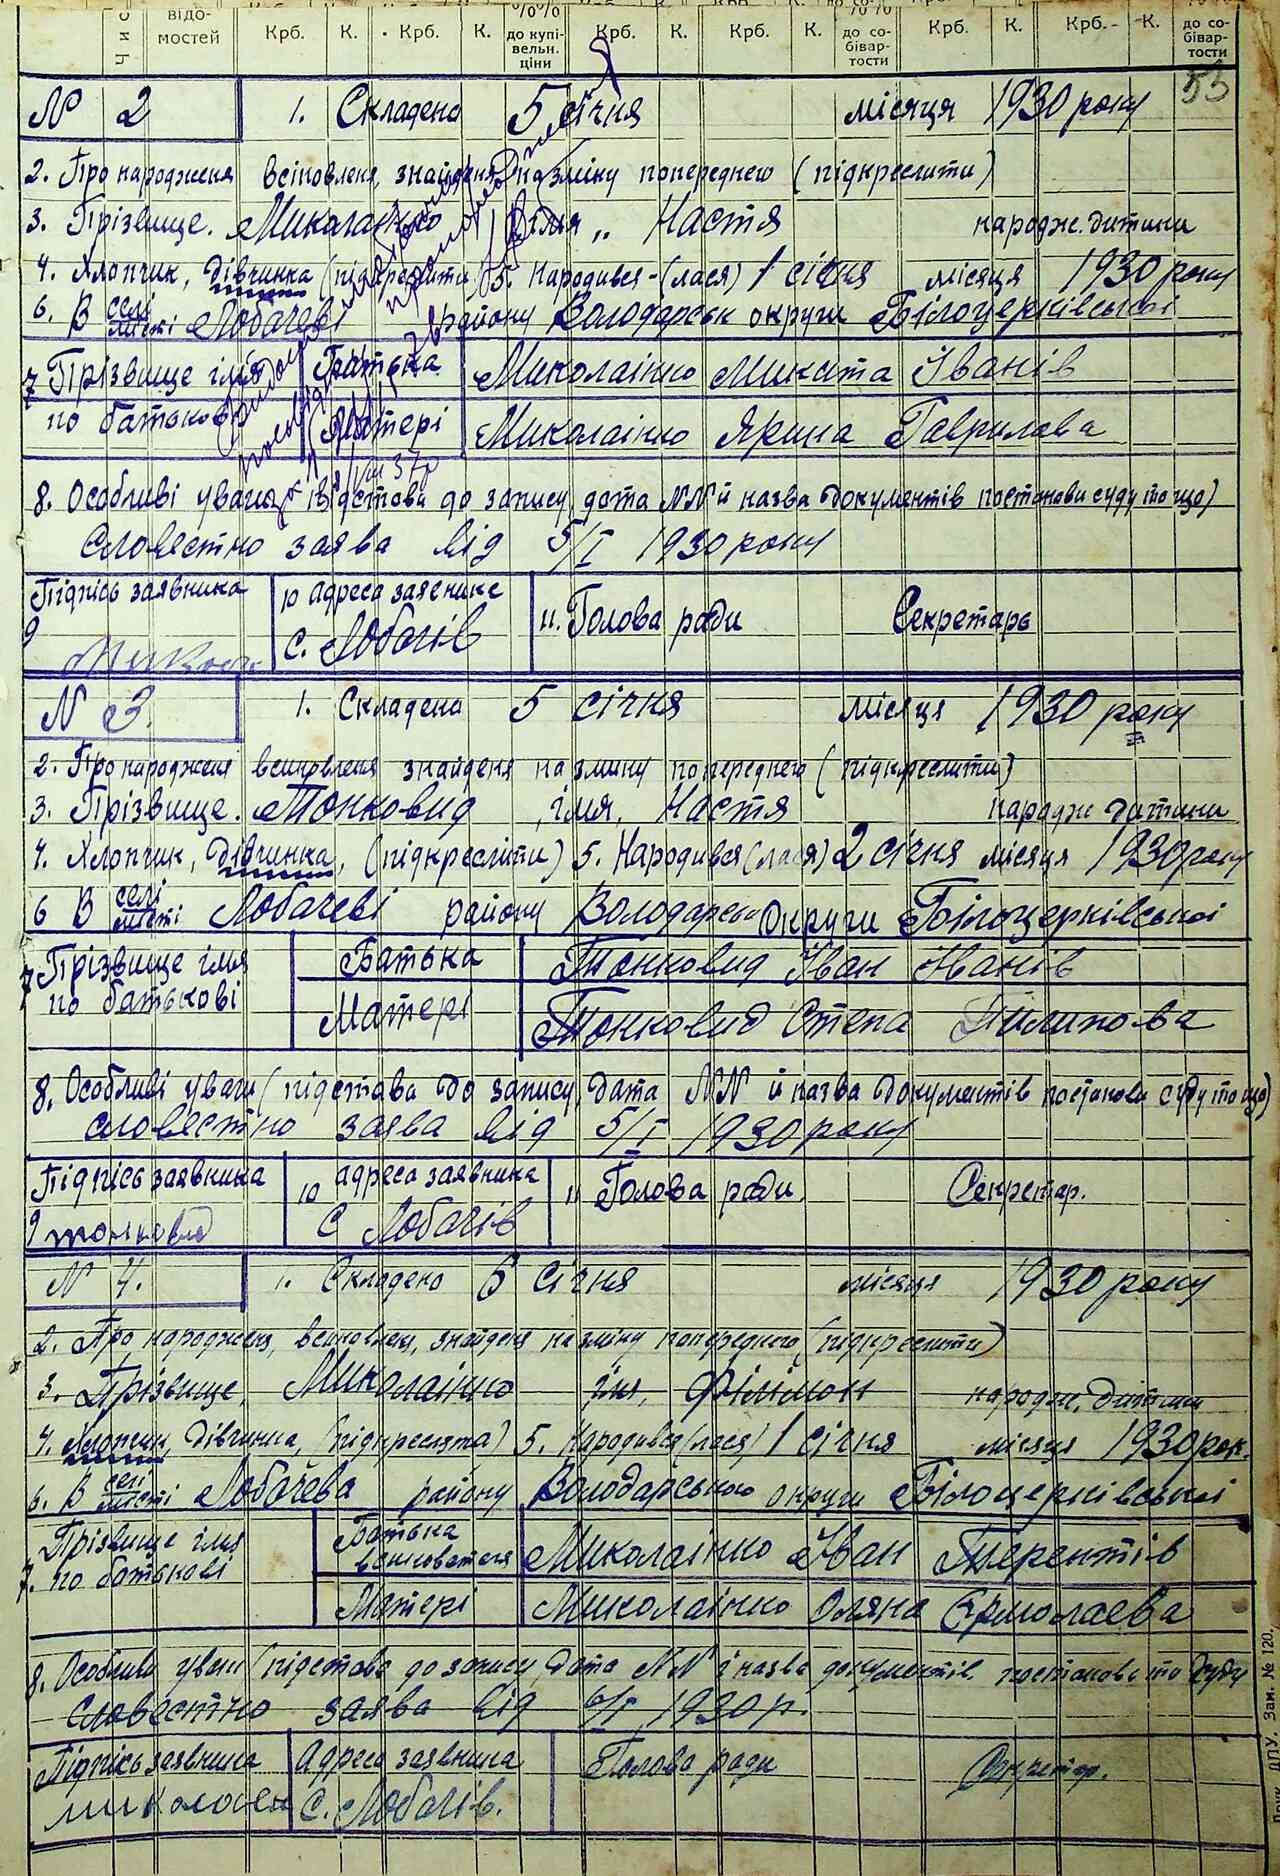 відо-
мостей Крб. К. Крб. К. %%
до купі-
вельн.
ціни Крб. К. Крб. К. до со-
бівар-
тости Крб. К. Крб. К. до со-
бівар-
тости
53
№ 2 1. Складено 5 січня місяця 1930 року
2. Про народженя всіновленя, знайденя на зміну попереднего (підкреслити)
3. Прізвище. Миколаінко імья „ Настя народж. дитини
4. Хлопчик, дівчинка (підкреслити) 5. Народився-(лася) 1 січня місяця 1930 року
6. В селі
місті Лобачеві району Володарськ округи Білоцерківської
7 Прізвище імья Батька Миколаінко Микита Іванів
по батькові Матері Миколаінко Ярина Гаврилова
8. Особливі уваги (підстава до запису, дата NN й назва документів постанови суду то що)
Словестно заява від 5/I 1930 року
Підпісь заявника 10 адреса заявника 11. Голова ради Секретарь
9 с. Лобачів
N 3. 1. Складено 5 січня місяця 1930 року
2. Про народженя всиновленя знайденя на зміну попереднего (підкреслити)
3. Прізвище. Тонковид, імя, Настя народж дитини
4. Хлопчик, дівчинка, (підкреслити) 5. Народився (лася) 2 січня місяця 1930 року
6 В селі
місті Лобачеві району Володарськ округи Білоцерківської
7 Прізвище імя Батька Тонковид Іван Іванів
по батькові Матері Тонковид Степа Пилипова
8. Особливі уваги (підстава до запису, дата NN й назва документів постанови суду то що)
словестно заява від 5/I 1930 року
Підпісь заявника 10 адреса заявника 11 Голова ради Секретар.
9 тонковид С Лобачів
N 4. 1. Складено 6 січня місяця 1930 року
2. Про народженя, всиновленя, знайденя на зміну попереднего (підкреслити)
3. Прізвище, Миколаінко імя, Філімон народж. дитини
4. Хлопчик, дівчинка, (підкреслита) 5. Народився (лася) 1 січня місяця 1930 рок.
6. В селі
місті Лобачева району Володарського округи Білоцерківської
Прізвище імя Батька Миколаінко Іван Терентів
7. по батькові Матері Миколаінко Оляна Єрмолаева
8. Особливі уваги (підстава до запису, дата NN і назва документів постанова то суду
словестно заява від 6/I 1930 р.
Підпісь заявника Адреса заявника Голова ради Секретар.
миколаен С. Лобачів.
Зам. № 120.